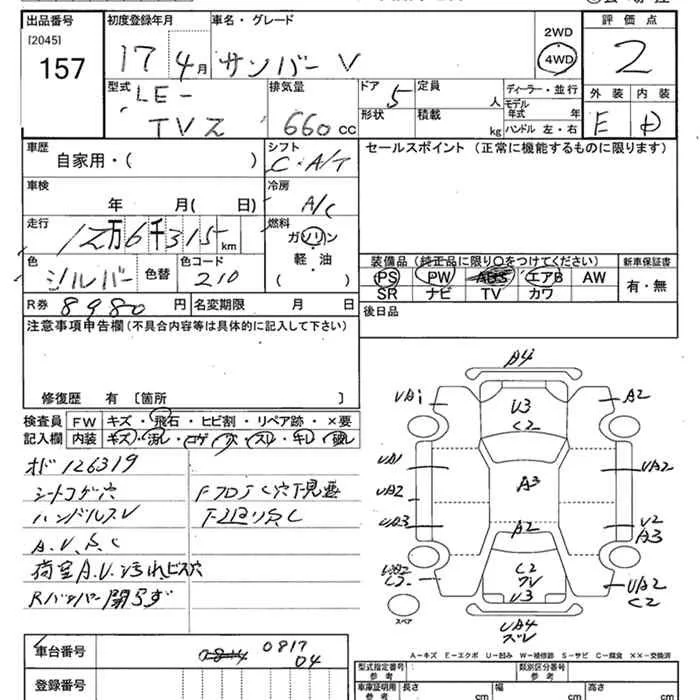 出品番号 初度登録年月 車名・グレード 評価点
[2045]
157 17 4月 サンバー V 2WD 4WD 2
型式 LE- 排気量 ドア 5 定員 人 ディーラー・並行 外装 内装
TVZ 660cc 形状 積載 kg モデル年式 年 ハンドル 左・右 E D
車歴 シフト セールスポイント (正常に機能するものに限ります)
自家用・( ) C・A/T
車検 冷房
年 月( 日) A/C
走行 燃料
12万6千315km ガソリン
色 色コード 軽・油 装備品 (純正品に限り○をつけてください) 新車保証書
シルバー 色替 210 ( ) PS PW ABS エアB AW 有・無
R券 8980円 名変期限 月 日 SR ナビ TV カワ
注意事項申告欄(不具合内容等は具体的に記入して下さい) 後日品
修復歴 有 [箇所 ]
検査員 FW キズ・飛石・ヒビ割・リペア跡・×要
記入欄 内装 キズ・汚レ・コゲ・穴・スレ・キレ・破レ
オド 126319
シートコゲ穴
ハンドルスレ
A.V.S.C
荷室A.V.汚れビス穴
Rバンパー
A4
UA1 A2
U3
C2
UA1 UA2
UA2 A3
UA3 A2 U2
A3
C2
U3 UA2
C2
スペア UA4
A-キズ E-エクボ U-凹み W-補修跡 S-サビ C-腐食 XX-交換済
車台番号 0817
04
登録番号
型式指定番号 参考 類別区分番号 参考
車庫証明用 参考 長さ cm 幅 cm 高さ cm